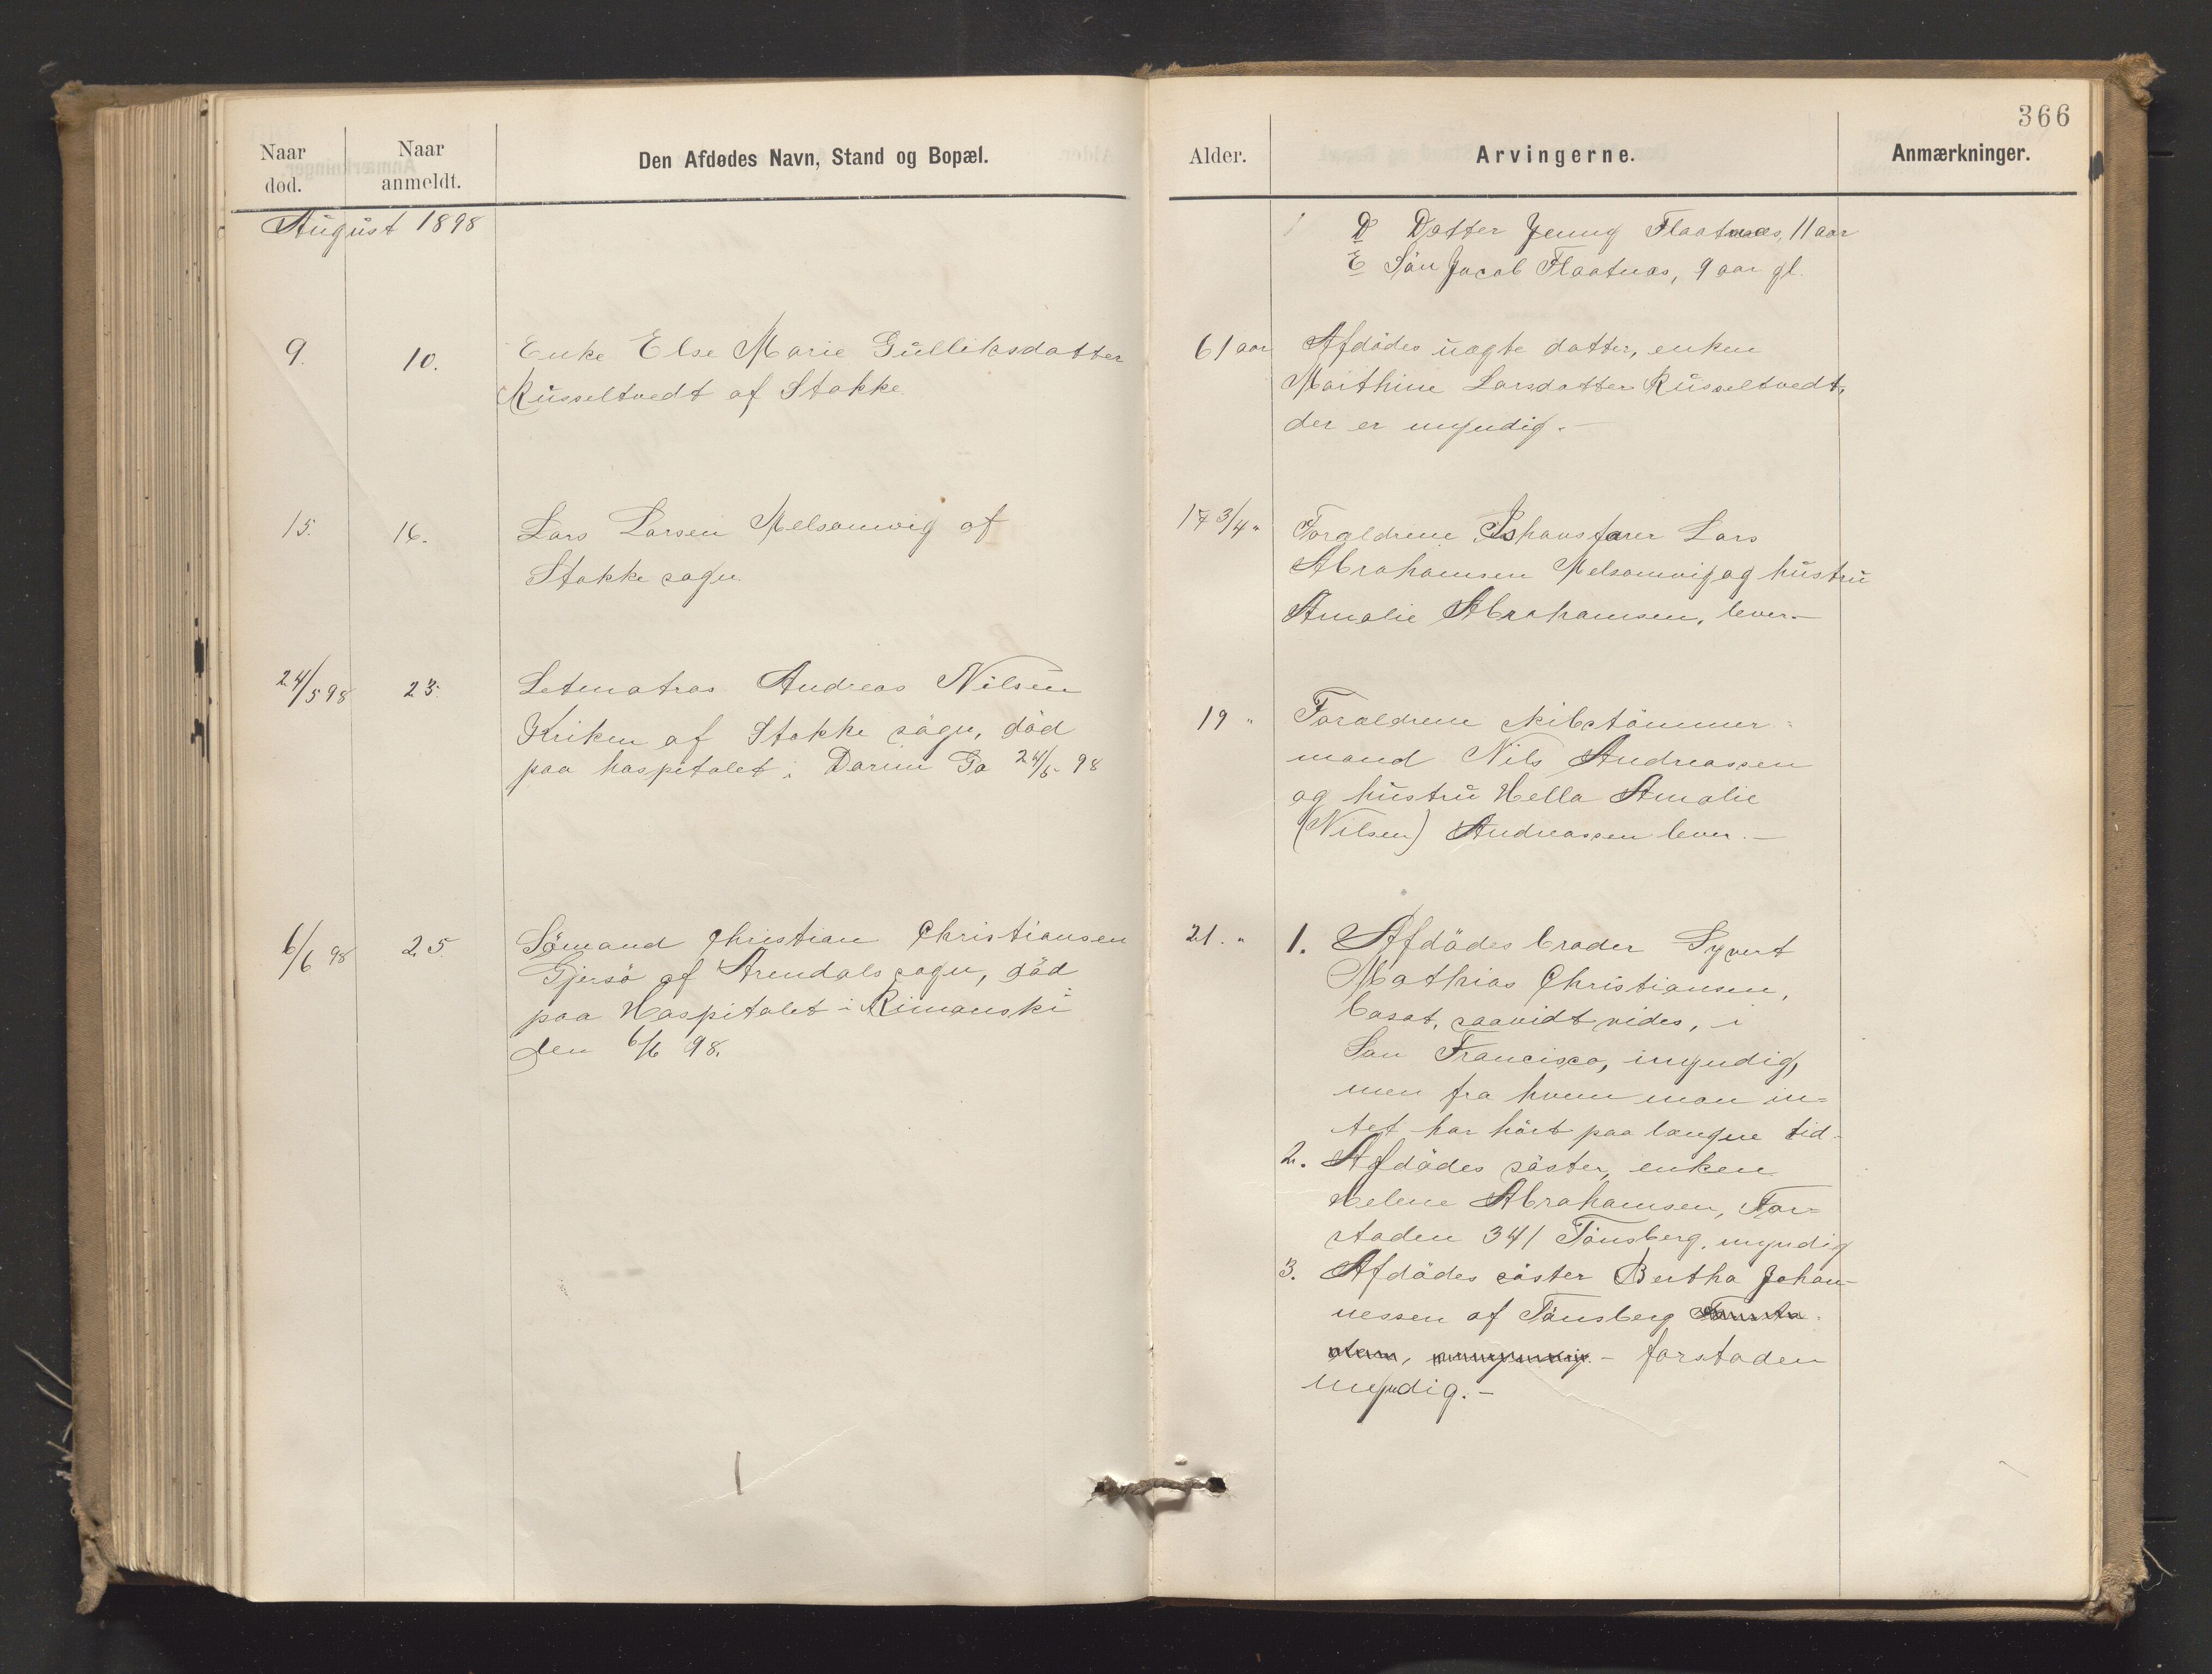 366
Naar død.
Naar anmeldt.
Den Afdødes Navn, Stand og Bopæl.
Alder.
Arvingerne.
Anmærkninger.
August 1898
D Datter Jenny Flaatnæs, 11 aar
E Sön Jacob Flaatnæs, 9 aar gl.
9. 10. Enke Else Marie Gulliksdatter
Russeltvedt af Stokke.
61 aar Afdödes uægte datter, enken
Maithine Larsdatter Russeltvedt,
der er myndig.-
15. 16. Lars Larsen Melsomvig af
Stokke sogn
17 3/4 " Forældrene Ishavsfarer Lars
Abrahamsen Melsomvig og hustru
Amalie Abrahamsen, lever.-
24/5 98 23. Letmatros Andreas Nilsen
Kriken af Stokke sogn, död
paa hospitalet i Darien Ga 24/5 98
19 " Forældrene skibstömmer=
mand Nils Andreassen
og hustru Hella Amalie
(Nilsen) Andreassen lever.-
6/6 98 25. Sömand Christian Christiansen
Gjersö af Arendals sogn, död
paa Hospitalet i Rimouski
den 6/6 98.
21. " 1. Afdödes broder Syvert
Mathias Christiansen,
bosat, saavidt vides, i
San Francisco, myndig,
men fra hvem man in=
tet har hört paa længere tid-
2. Afdödes söster, enken
Helene Abrahamsen, For=
staden 341 Tönsberg, myndig
3. Afdödes söster Bertha Johan-
nessen af Tönsberg
- forstaden
myndig.-